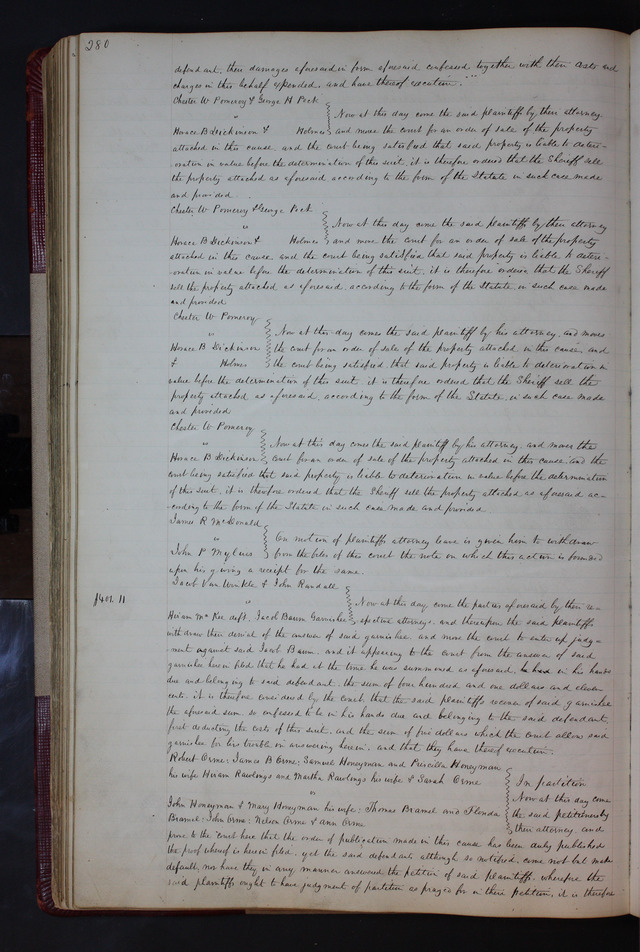 280
defendant, their damages aforesaid in form aforesaid confessed together with their costs and
charges in this behalf expended, and have thereof execution.
Chester W Pomeroy & George H Peck
" Now at this day come the said plaintiffs by their attorney
Horace B Dickinson & Holmes and move the court for an order of sale of the property
attached in this cause and the court being satisfied that said property is liable to deteri-
oration in value before the determination of this suit, it is therefore ordered that the Sheriff sell
the property attached as aforesaid according to the form of the Statute in such case made
and provided
Chester W Pomeroy & George Peck
" Now at this day come the said plaintiffs by their attorney
Horace B Dickinson & Holmes and move the court for an order of sale of the property
attached in this cause and the court being satisfied, that said property is liable to deteri-
oration in value before the determination of this suit, it is therefore ordered that the Sheriff
sell the property attached as aforesaid, according to the form of the Statute, in such case made
and provided
Chester W Pomeroy
" Now at this day comes the said plaintiff by his attorney, and moves
Horace B Dickinson the court for an order of sale of the property attached in this cause, and
& Holmes the court being satisfied, that said property is liable to deterioration in
value before the determination of this suit, it is therefore ordered that the Sheriff sell the
property attached as aforesaid, according to the form of the Statute, in such case made
and provided
Chester W Pomeroy
" Now at this day comes the said plaintiff by his attorney, and moves the
Horace B Dickinson court for an order of sale of the property attached in this cause, and the
court being satisfied that said property is liable to deterioration in value before the determination
of this suit, it is therefore ordered that the Sheriff sell the property attached as aforesaid ac-
cording to the form of the Statute in such case made and provided
James R McDonald
" On motion of plaintiffs attorney leave is given him to withdraw
John P from the files of this court the note on which this action is founded
upon his giving a receipt for the same.
Jacob Van Winkle & John Randall
$401.11 " Now at this day come the parties aforesaid by their re-
Hiram McKee deft, Jacob Baum Garnishee spective attorneys and thereupon the said plaintiffs
withdraw their denial of the answer of said garnishee and move the court to enter up judg-
ment against said Jacob Baum, and it appearing to the court from the answer of said
garnishee herein filed that he had at the time he was summoned as aforesaid, in his hands
due and belonging to said defendant, the sum of four hundred and one dollars and eleven
cents it is therefore considered by the court, that the said plaintiffs recover of said garnishee
the aforesaid sum so confessed to be in his hands due and belonging to the said defendant,
first deducting the costs of this suit, and the sum of five dollars which the court allow said
garnishee for his trouble in answering herein, and that they have thereof execution.
Robert Orme, James B Orme, Samuel Honeyman and Priscilla Honeyman
his wife Hiram Rawlings and Martha Rawlings his wife & Sarah Orme In partition
" Now at this day come
John Honeyman & Mary Honeyman his wife, Thomas Bramel and the said petitioners by
Bramel, John Orme, Nelson Orme & Ann Orme their attorney, and
prove to the court here that the order of publication made in this cause has been duly published
the proof whereof is herein filed, yet the said defendants although so notified, come not but make
default, nor have they in any manner answered the petition of said plaintiffs, wherefore the
said plaintiffs ought to have judgment of partition as prayed for in their petition, it is therefore